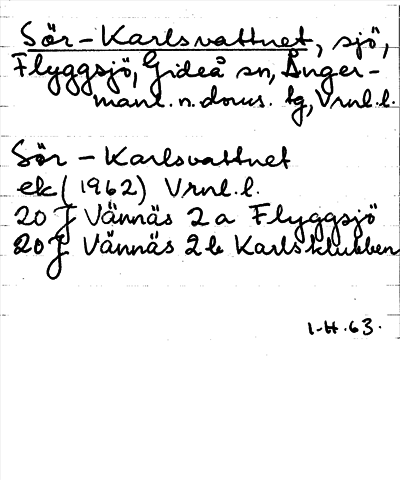 Sör-Karlsvattnet, sjö,
Flyggsjö, Gideå sn, Ånger-
manl. n. doms. tg, Vrnl.l.
Sör-Karlsvattnet
ek (1962) Vrnl.l.
20 J Vännäs 2 a Flyggsjö
20 J Vännäs 2 b Karlsklubben
1-H.63.